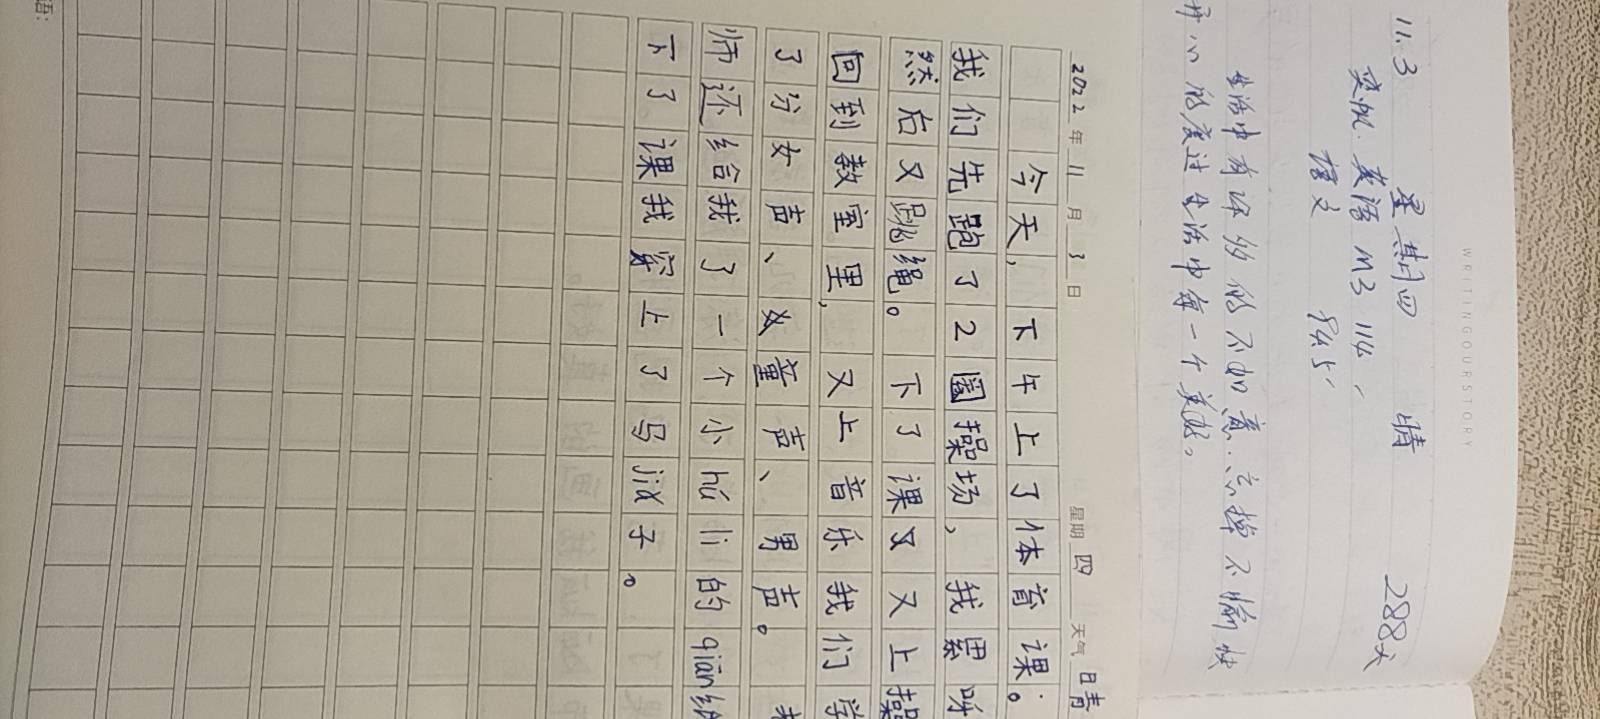 11.3 星期四 晴 288天
英语 M3 114
生活中有许多的不如意.忘掉不愉快
开心的度过生活中每一个美好。
WRITINGOURSTORY
2022年11月3日 星期四 天气 晴
今天,下午上了体育课。
我们先跑了2圈操场,我累呼
然后又跳绳。下了课又上操
回到教室里,又上音乐我们学
了分女声、童声、男声。
师还给我了一个小hú li的qiān纸
下了课我穿上了马jiǎ子。